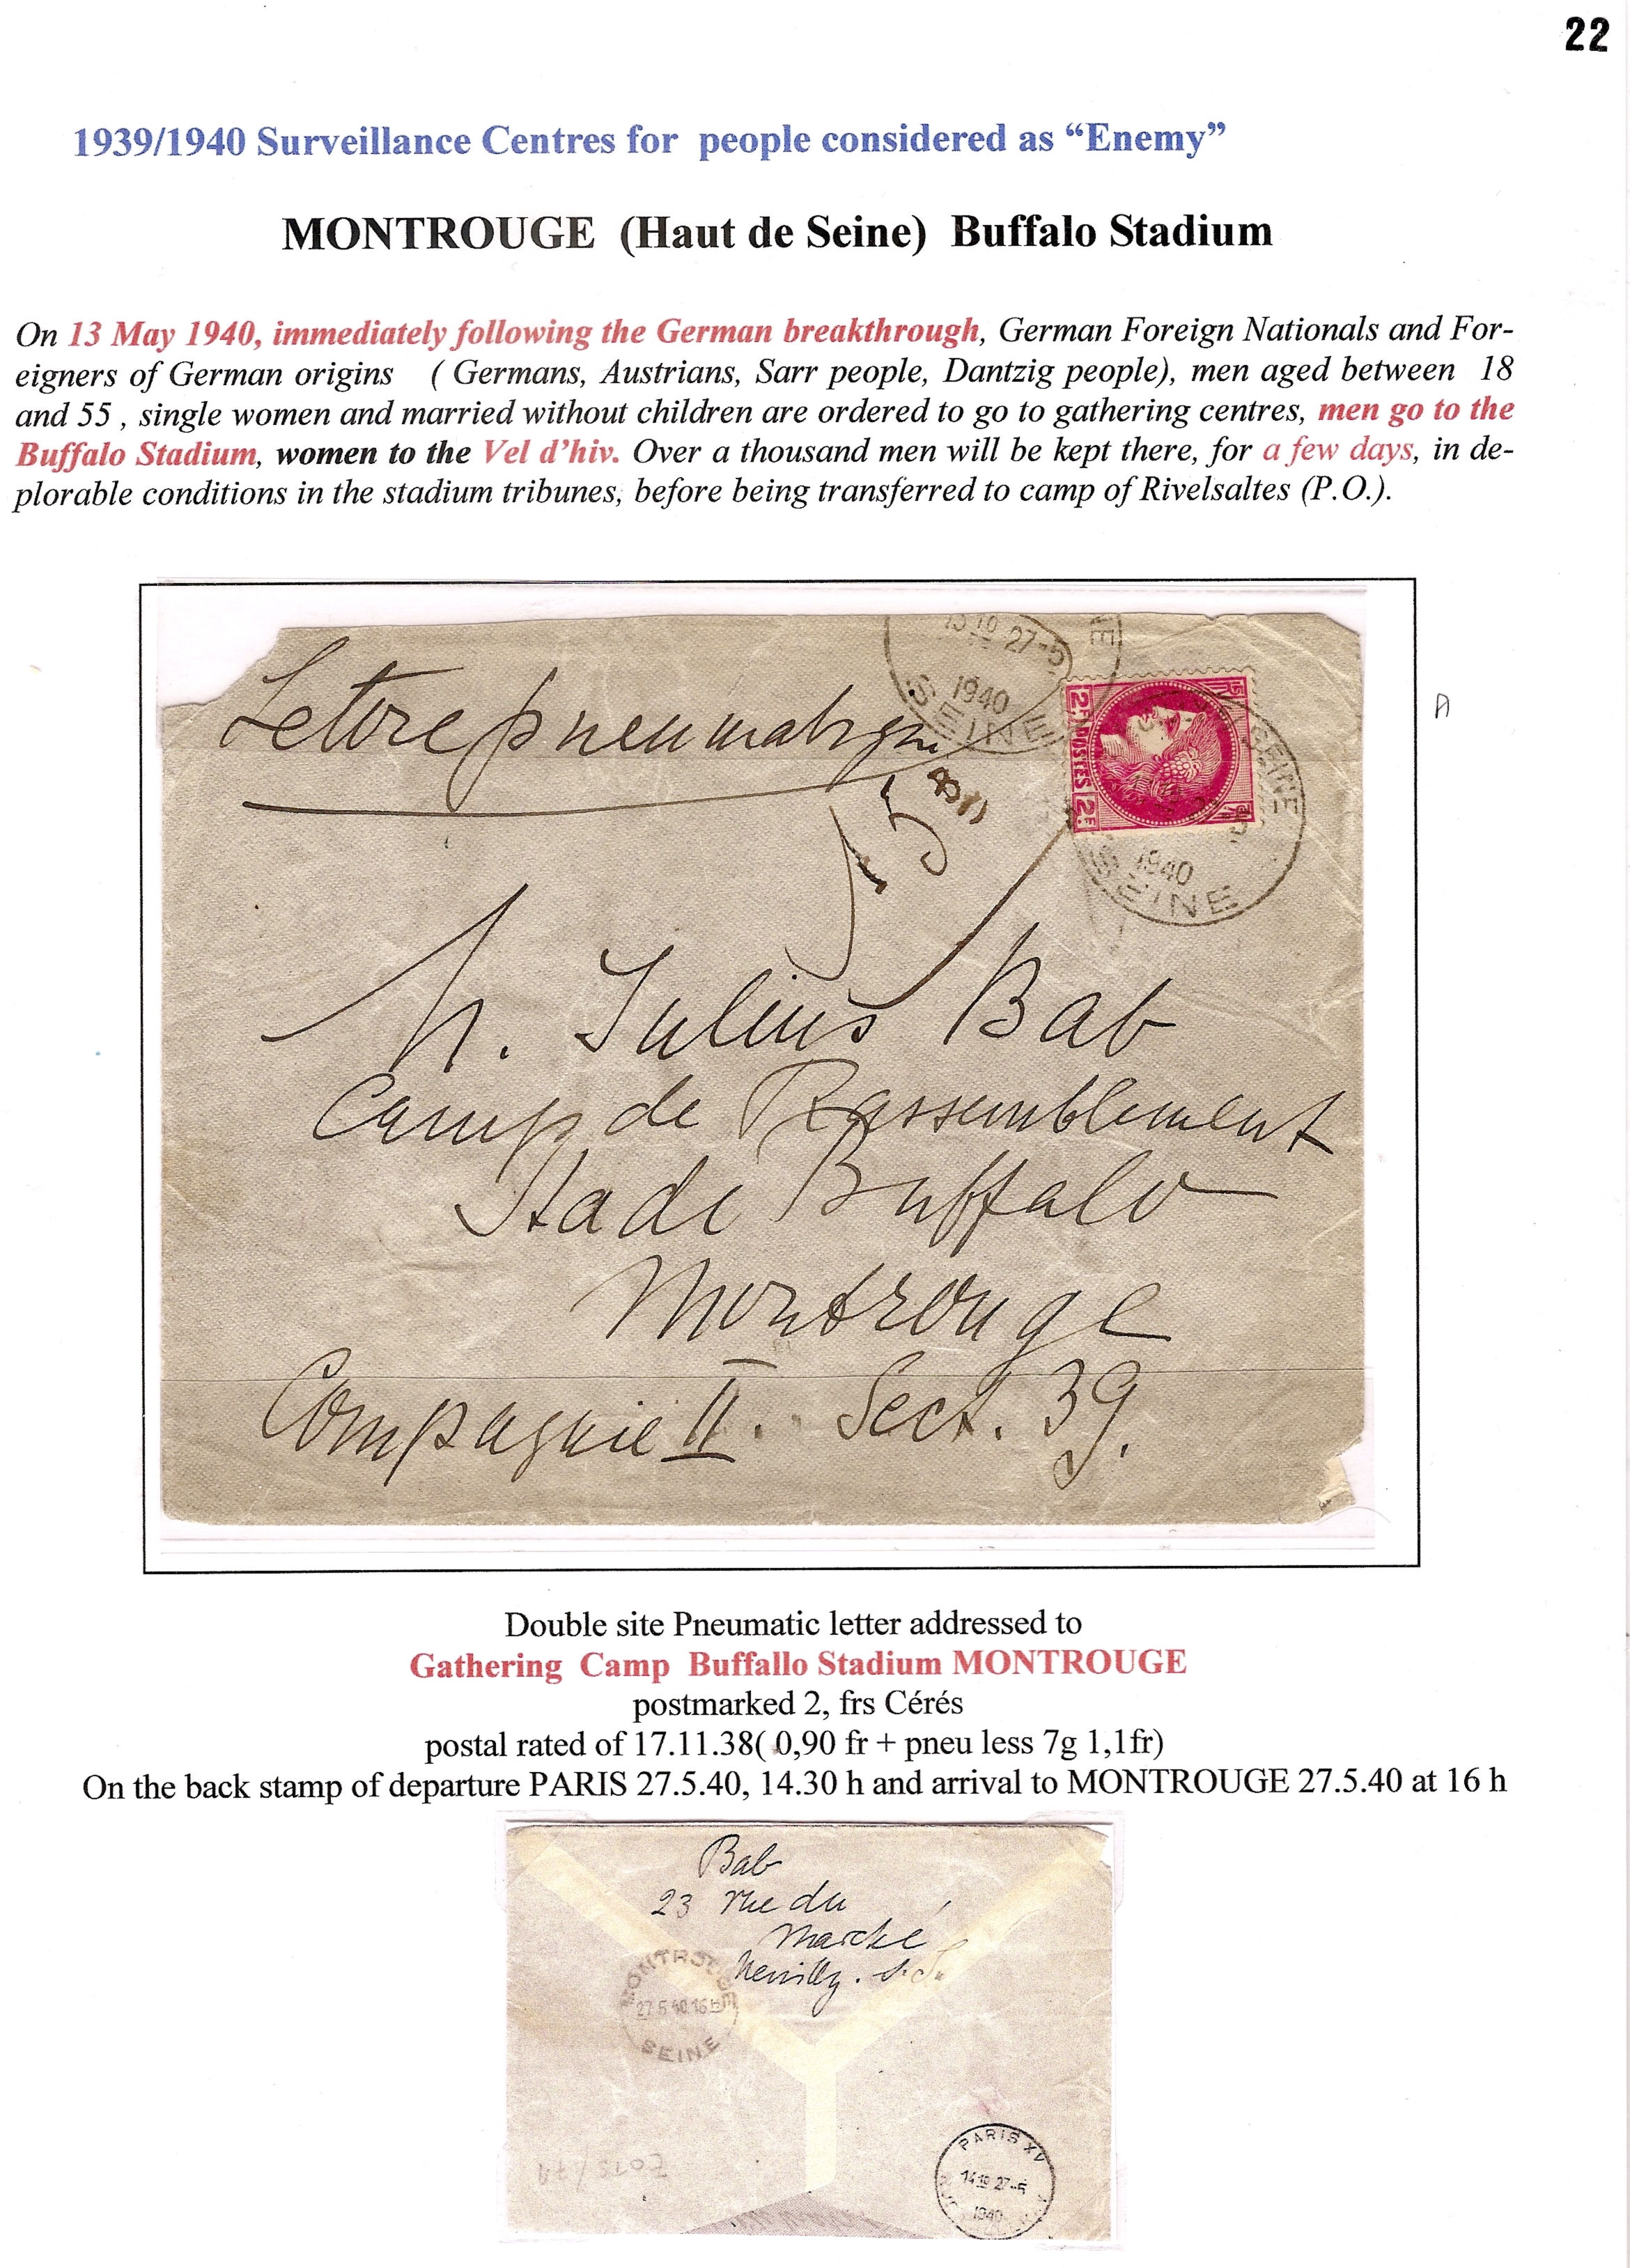 22
1939/1940 Surveillance Centres for people considered as “Enemy”
MONTROUGE (Haut de Seine) Buffalo Stadium
On 13 May 1940, immediately following the German breakthrough, German Foreign Nationals and For-
eigners of German origins ( Germans, Austrians, Sarr people, Dantzig people), men aged between 18
and 55 , single women and married without children are ordered to go to gathering centres, men go to the
Buffalo Stadium, women to the Vel d’hiv. Over a thousand men will be kept there, for a few days, in de-
plorable conditions in the stadium tribunes, before being transferred to camp of Rivelsaltes (P.O.).
27-5
1940
SEINE
Lettre pneumatique
2F POSTES 2F
SEINE
1940
SEINE
M. Julius Bab
Camp de Rassemblement
Stade Buffalo
Montrouge
Compagnie II. Sect. 39.
Double site Pneumatic letter addressed to
Gathering Camp Buffallo Stadium MONTROUGE
postmarked 2, frs Cérés
postal rated of 17.11.38( 0,90 fr + pneu less 7g 1,1fr)
On the back stamp of departure PARIS 27.5.40, 14.30 h and arrival to MONTROUGE 27.5.40 at 16 h
Bab
23 rue du
Marché
Neuilly. s. S.
MONTROUGE
27.5.40.16
SEINE
PARIS XV
27-5
1940